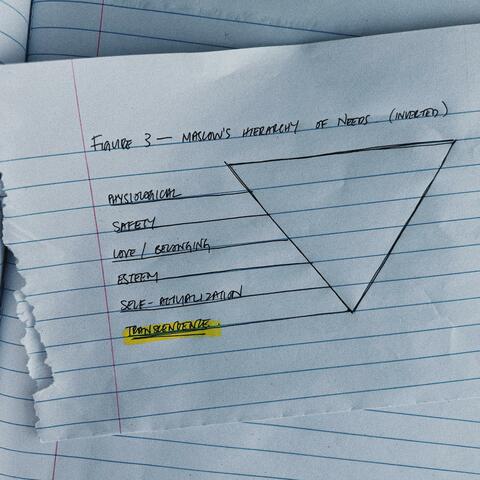 FIGURE 3 — MASLOW'S HIERARCHY OF NEEDS (INVERTED)
PHYSIOLOGICAL
SAFETY
LOVE / BELONGING
ESTEEM
SELF-ACTUALIZATION
TRANSCENDENCE.